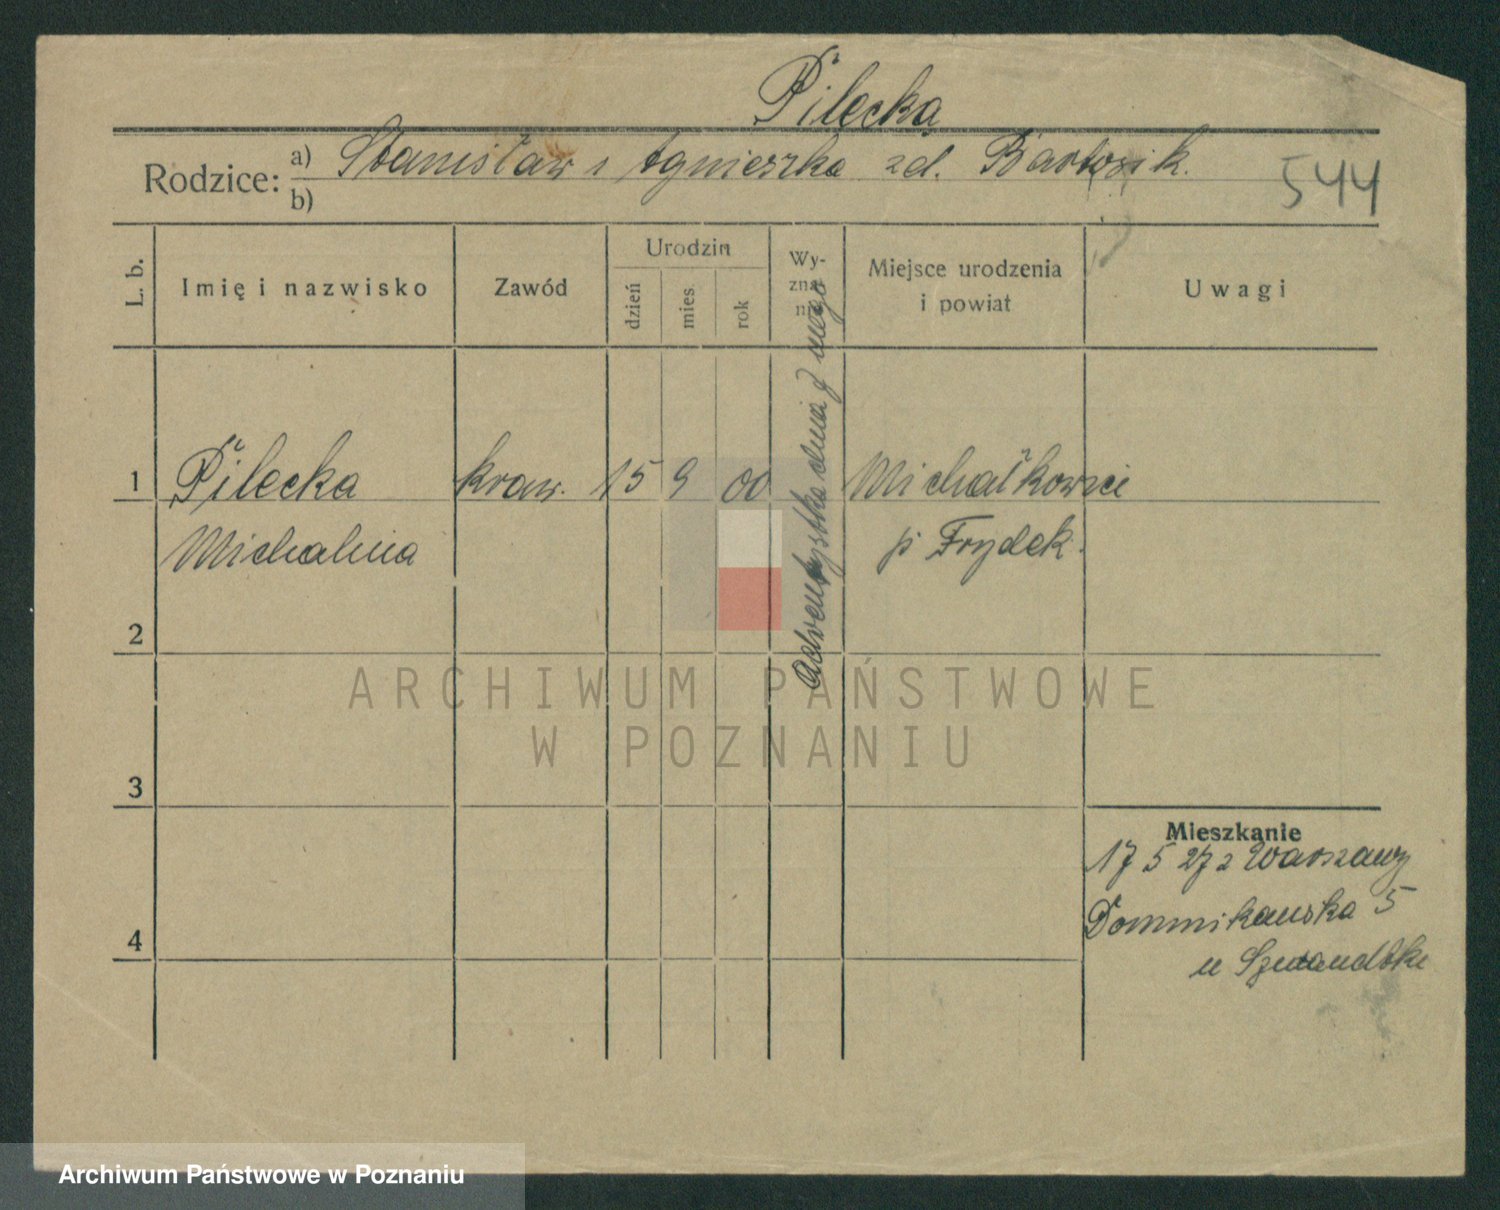 Pilecka
Rodzice: a) Stanisław i Agnieszka zd. Bartozik.
b)
544
L. b.
Imię i nazwisko
Zawód
Urodzin
dzień
mies.
rok
Wy-
zna-
nie
Miejsce urodzenia
i powiat
Uwagi
1 Pilecka kraw. 15 9 00 Michałkowice
Michalina p Frydek.
adwentystka dnia 7 mego
2
3
4
Mieszkanie
17 5 27 z Warszawy
Dominikańska 5
u
ARCHIWUM PAŃSTWOWE
W POZNANIU
Archiwum Państwowe w Poznaniu